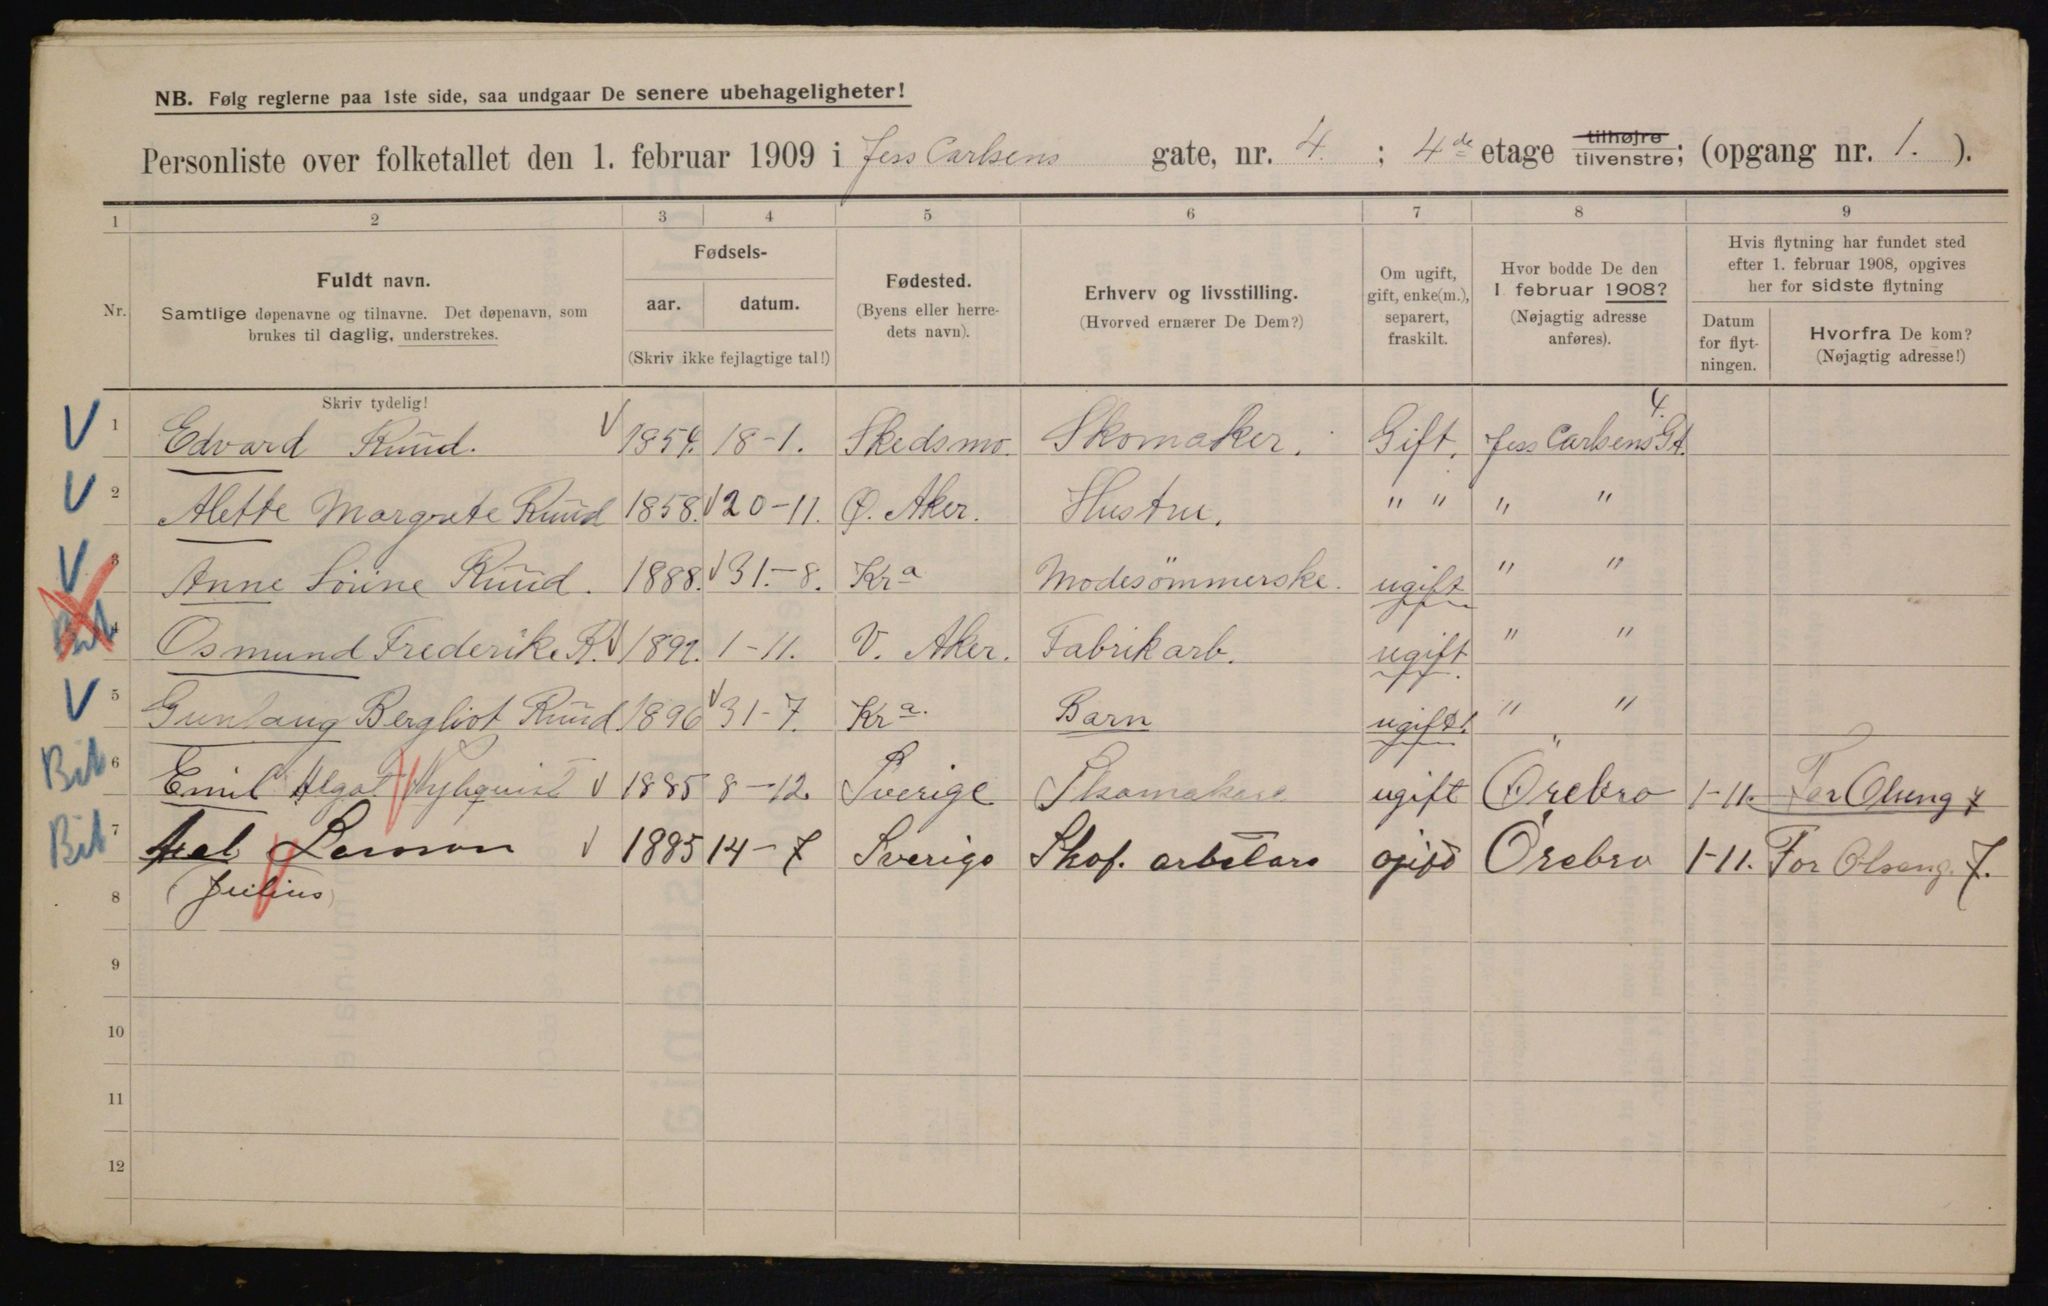 NB. Følg reglerne paa 1ste side, saa undgaar De senere ubehageligheter!
Personliste over folketallet den 1. februar 1909 i Jess Carlsens gate, nr. 4. ; 4de etage tilhøjre tilvenstre; (opgang nr. 1. ).
1 2 3 4 5 6 7 8 9
Nr.
Fuldt navn.
Samtlige døpenavne og tilnavne. Det døpenavn, som
brukes til daglig, understrekes.
Fødsels-
aar. datum.
(Skriv ikke fejlagtige tal!)
Fødested.
(Byens eller herre-
dets navn).
Erhverv og livsstilling.
(Hvorved ernærer De Dem?)
Om ugift,
gift, enke(m.),
separert,
fraskilt.
Hvor bodde De den
1 februar 1908?
(Nøjagtig adresse
anføres).
Hvis flytning har fundet sted
efter 1. februar 1908, opgives
her for sidste flytning
Datum
for flyt-
ningen.
Hvorfra De kom?
(Nøjagtig adresse!)
Skriv tydelig!
V 1 Edvard Ruud. V 1854. 18-1. Skedsmo. Skomaker. Gift. Jess Carlsens Gt. 4.
V 2 Alette Margrete Ruud 1858. V 20-11. Ø. Aker. Hustru. " " " "
V 3 Anne Ruud. 1888. V 31.-8. Kra Modesömmerske. ugift " "
Bib 4 Osmund Frederik R. V 1892. 1-11. V. Aker. Fabrikarb. ugift. " "
V 5 Gunlaug Bergliot Ruud. 1896 V 31-7. Kra. Barn ugift. " "
Bib 6 Emil Algot V 1885 8-12. Sverige Skomakare ugift Örebro 1-11. Tor Olseng 7
Bib 7 Larsson V 1885 14-7 Sverige Skof. arbetare ogift Örebro 1-11. Tor Olseng. 7.
8 (Julius)
9
10
11
12